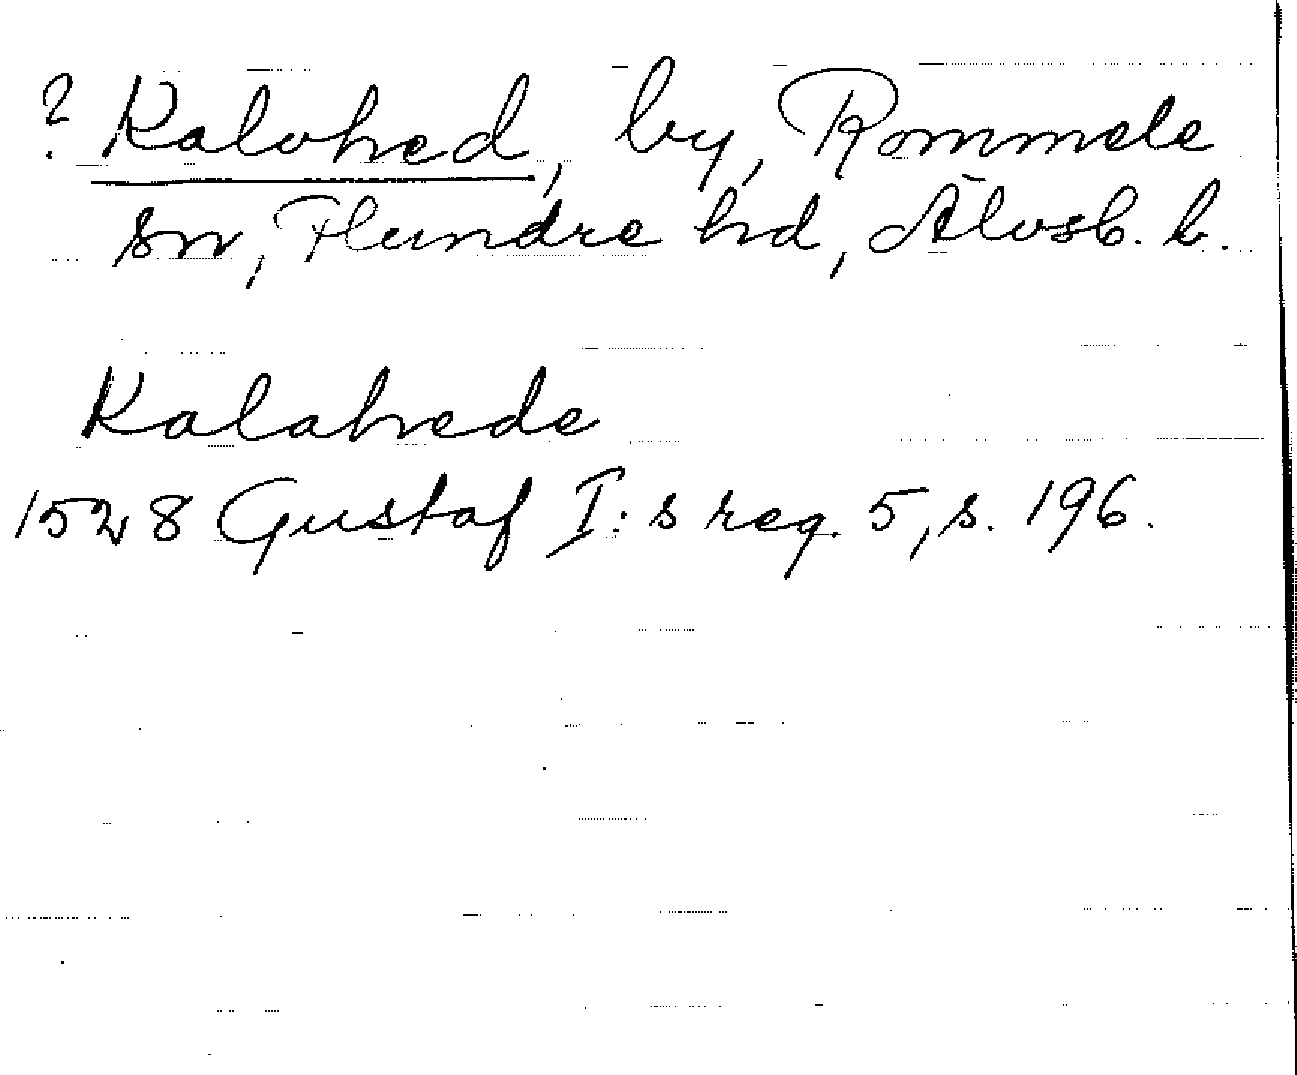 ? Kalvhed, by, Rommele
sn, Flundre hd, Älvsb. l.
Kalahede
1528 Gustaf I:s reg. 5, s. 196.